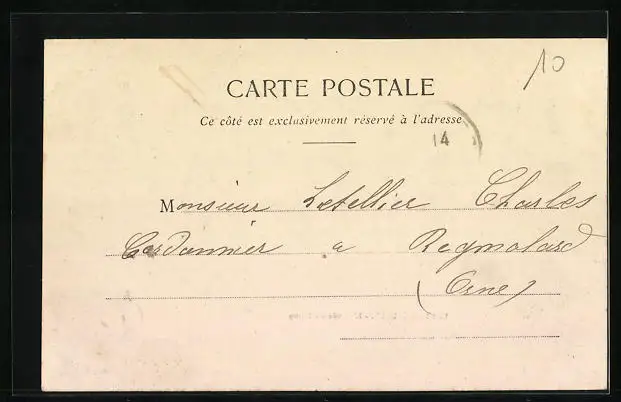 10
CARTE POSTALE
Ce côté est exclusivement réservé à l'adresse
14
Monsieur Letellier Charles
Cordonnier a Regmalard
(Orne)